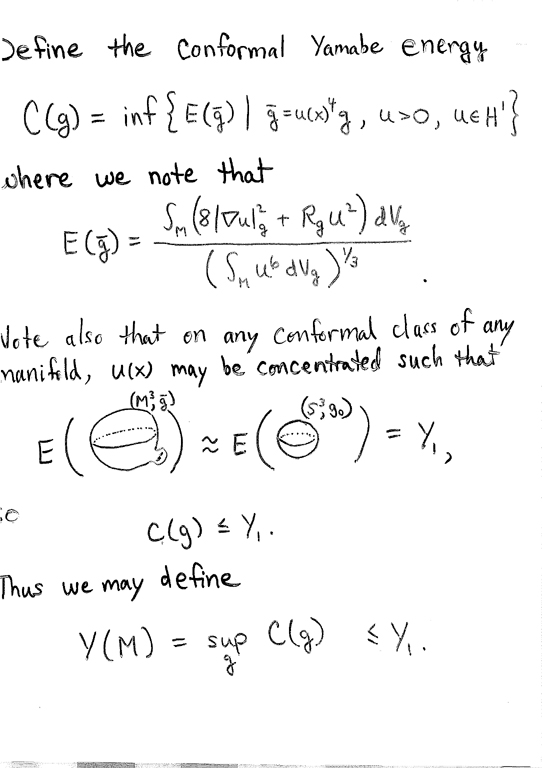 Define the Conformal Yamabe energy
C(g) = inf { E(ḡ) | ḡ=u(x)⁴g , u>0, u∈H¹}
where we note that
E(ḡ) = ∫_M (8|∇u|²_g + R_g u²) dV_g / (∫_M u⁶ dV_g)^{1/3} .
Note also that on any conformal class of any
manifild, u(x) may be concentrated such that
(M³,ḡ) (S³,g₀)
E( ) ≈ E( ) = Y₁,
so
C(g) ≤ Y₁.
Thus we may define
Y(M) = sup_g C(g) ≤ Y₁.